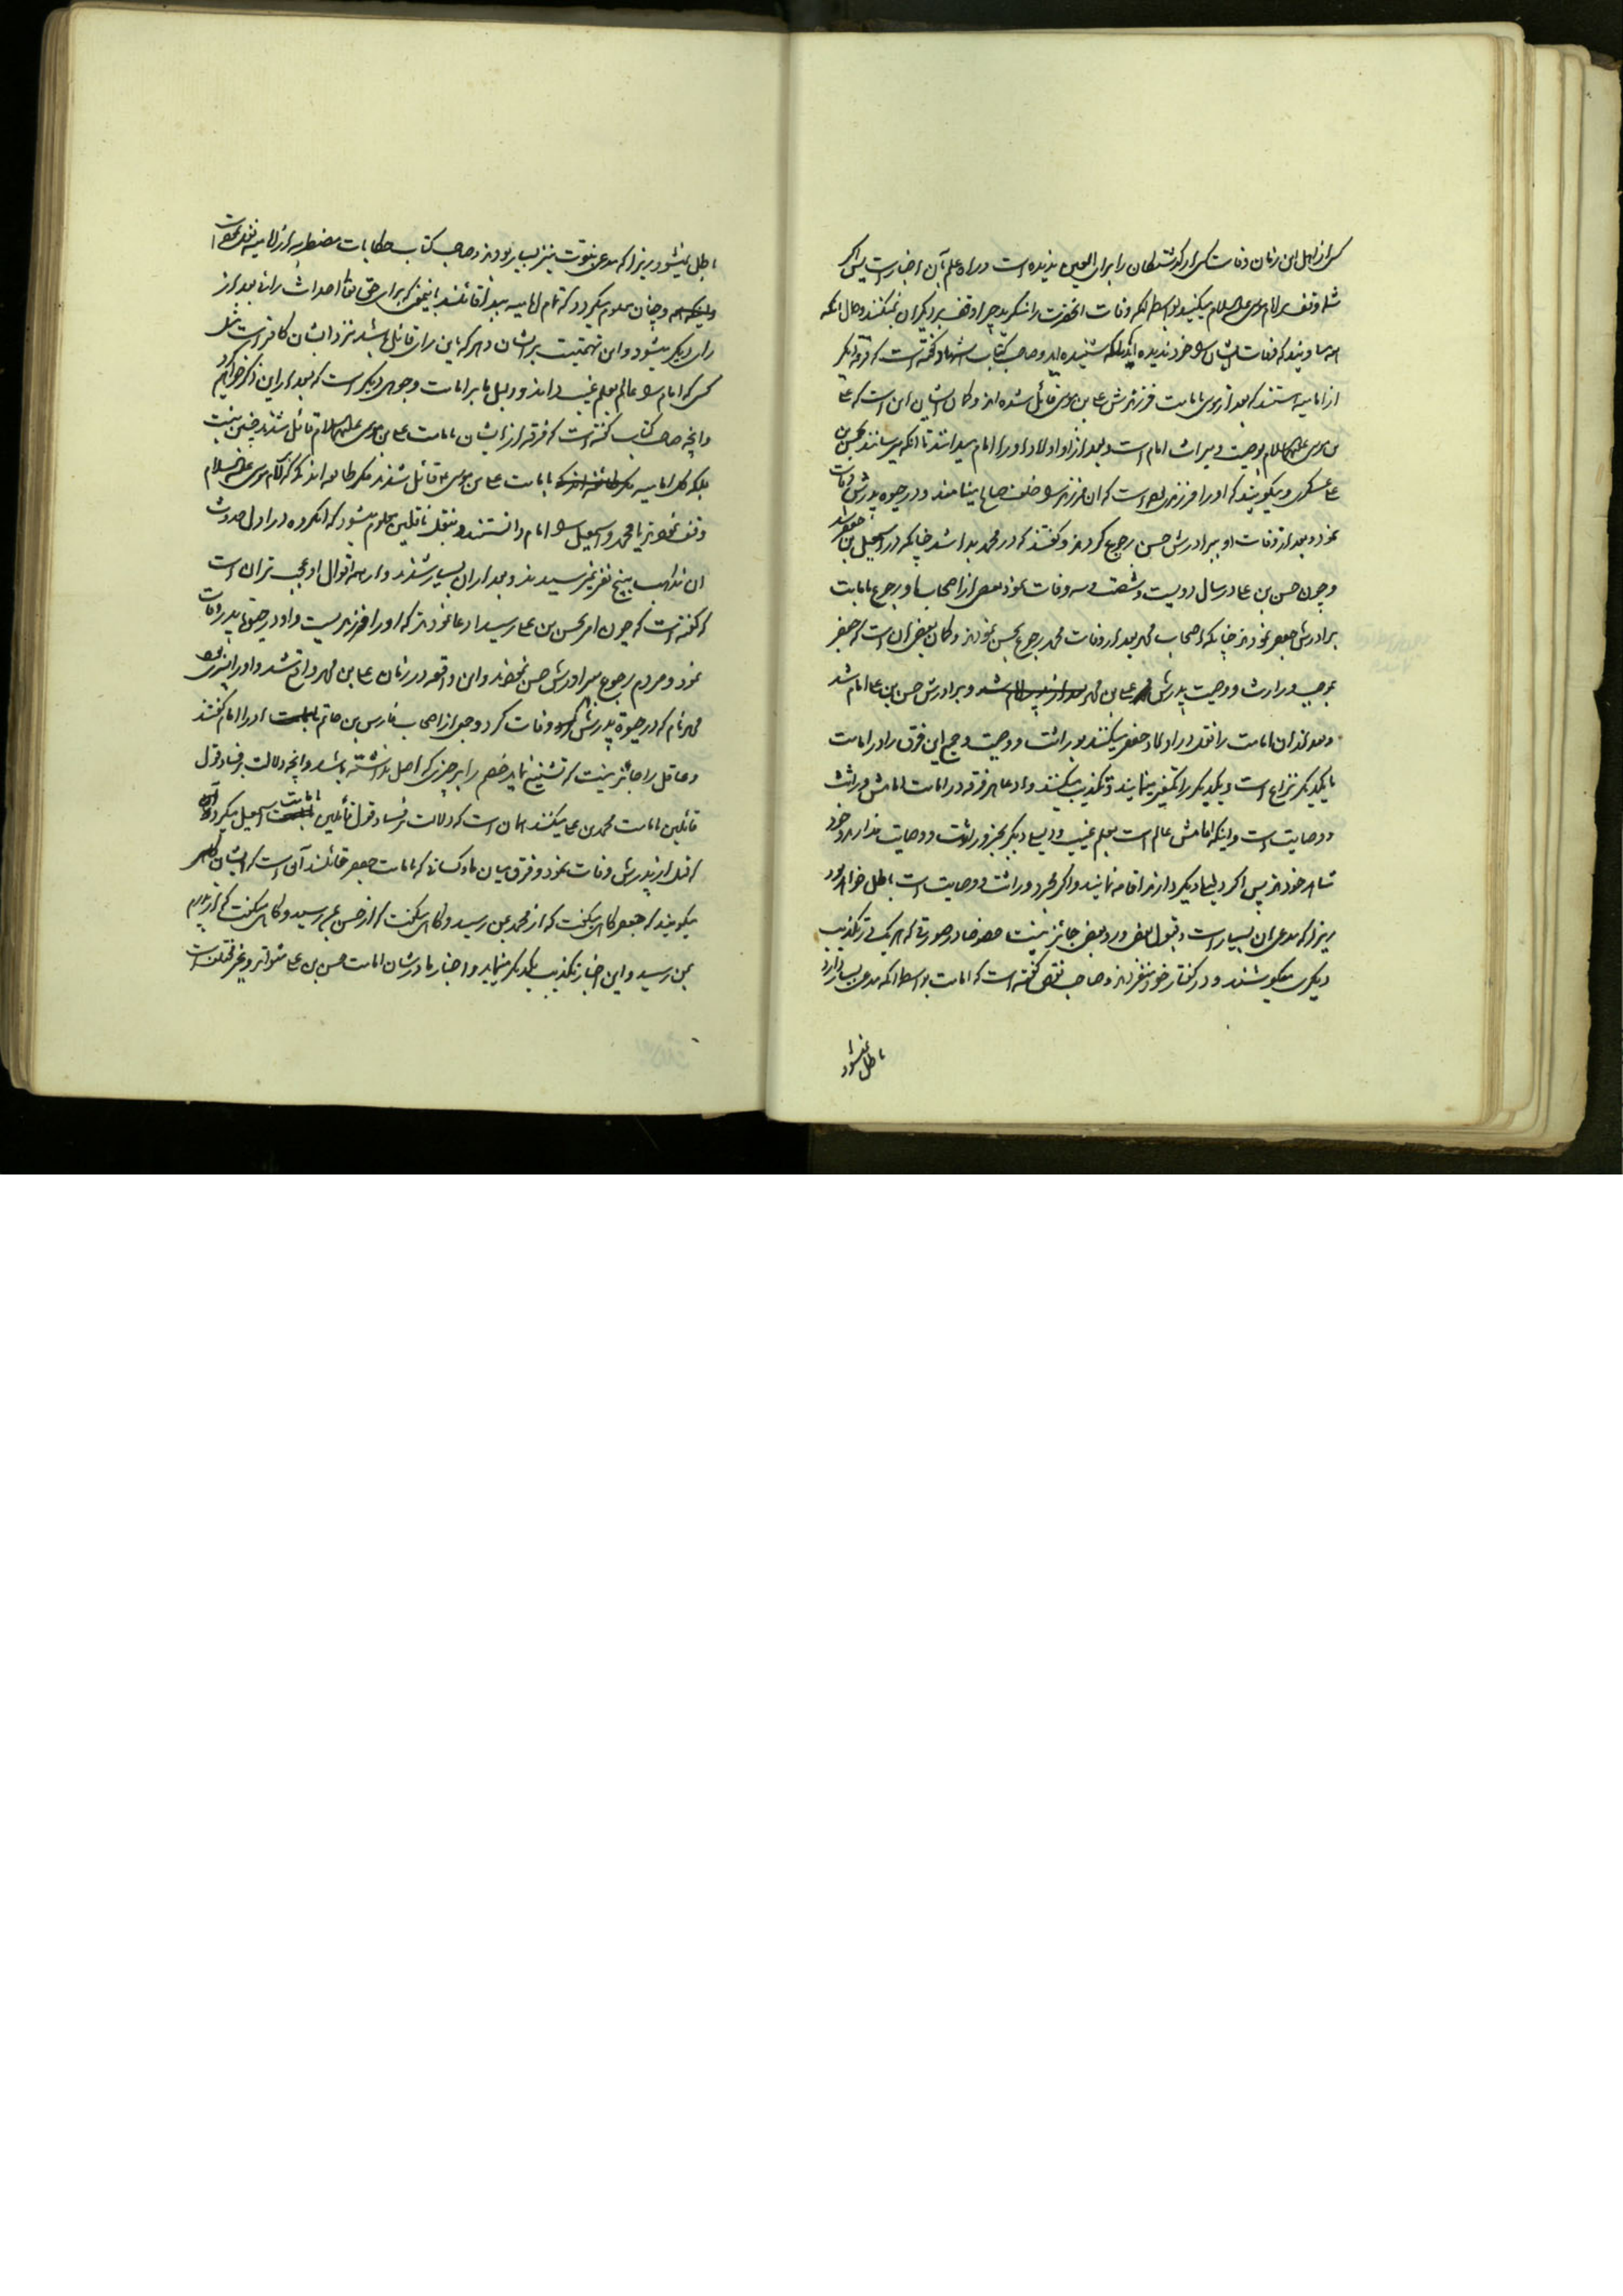 کسی از اهل این زمان وفات کسی از گذشتگان را برای العین ندیده است و راه علم بآن اخبار است پس اگر
شما وقف بر امام موسی علیه السلام میکنید بواسطه انکه وفات انحضرت را منکرید چرا وقف بر دیگران نمیکنید و حال انکه
که وفات ایشان را خود ندیده اید بلکه شنیده اید و صاحب کتاب اشهاد گفته است که فرقه دیگر
از امامیه هستند که بعد از موسی بامامت فرزندش علی بن موسی قائل شده اند و گمان ایشان این است که علی
بن موسی علیهما السلام بوصیت و میراث امام است و بعد از او اولاد او را امام میدانند تا انکه میرسانند بحسن بن
علی عسکری و میگویند که او را فرزندی بوده است که ان فرزند را خلف صالح مینامند و در حیوة پدرش وفات
نمود و بعد از وفات او ببرادرش حسن رجوع کردند و گفتند که در محمد بدا شد چنانکه در اسمعیل بن جعفر شد
و چون حسن بن علی در سال دویست و شصت و سه وفات نمود بعضی از اصحاب او رجوع بامامت
برادرش جعفر نمودند چنانکه اصحاب محمد بعد از وفات محمد رجوع بحسن نمودند و گمان بعضی ان است که جعفر
بموجب وراثت و وصیت پدرش علی بن محمد بعد از پدر امام شد و برادرش حسن بن علی امام شد
و بعد از ان امامت را نقل در اولاد جعفر میکنند بوراثت و وصیت و جمیع این فرق را در امامت
با یکدیگر نزاع است و یکدیگر را تکفیر مینمایند و تکذیب میکنند و ادعای هر فرقه در امامت امامش وراثت
و وصایت است و اینکه امامش عالم است بعلم غیب و دلیلی دیگر بجز وراثت و وصایت ندارند و خود
شاهد خودند پس اگر دلیلی دیگر دارند اقامه نمایند و اگر بمجرد وراثت و وصایت است باطل خواهد بود
زیرا که مدعیان بسیار است و قبول بعض و رد بعض جائز نیست خصوصا در صورتی که هر یک در تکذیب
دیگری میکوشند و در گفتار خود متفردند و صاحب نقض گفته است که امامت بواسطه انکه مدعی بسیار دارد
باطل نمیشود
باطل نمیشود زیرا که مدعی نبوت نیز بسیار بودند و صاحب کتاب حکایات مضطربه از امامیه نقل نموده است
و چنان معلوم میگردد که تمام امامیه ببدا قائلند باینمعنی که برای حق تعالی احداث رائی بعد از
رای دیگر میشود و این تهمتیست بر ایشان و هر که باین رای قائل باشد نزد ایشان کافر است مثل
کسی که امام را عالم بعلم غیب داند و دلیل ما بر امامت وجوهی دیگر است که بعد از این ذکر خواهیم کرد
و انچه صاحب کتاب گفته است که فرقه از ایشان بامامت علی بن موسی علیهما السلام قائل شدند چنین نیست
بلکه کل امامیه بامامت علی بن موسی ع قائل شدند مگر طایفه اندکی که بر امام موسی علیه السلام
وقف نمودند یا محمد و اسمعیل را امام دانستند و بنقل ناقلین معلوم میشود که انگروه در اول حدوث
ان مذاهب بپنج نفر نمیرسیدند و بعد از ان بسیار شدند و از همه اقوال او عجب تر ان است
که گفته است که چون امر بحسن بن علی رسید ادعا نمودند که او را فرزندیست و او در حیوة پدر وفات
نمود و مردم رجوع ببرادرش حسن نمودند و این واقعه در زمان علی بن محمد واقع شد و او را پسری بود
محمد نام که در حیوة پدرش وفات کرد و جمعی از اصحاب فارس بن حاتم او را امام گفتند
و عاقل را جائز نیست که تشنیع نماید خصم را بر چیزی که اصل نداشته باشد و انچه دلالت بر فساد قول
قائلین امامت محمد بن علی میکند همان است که دلالت بر فساد قول قائلین امامت اسمعیل میکرد
که قبل از پدرش وفات نمود و فرق میان ما و کسانی که بامامت جعفر قائلند آن است که ایشان
میگویند که جعفر گاهی میگفت که از محمد بمن رسید و گاهی میگفت که از حسن بمن رسید و گاهی میگفت که از پدرم
بمن رسید و این اخبار تکذیب یکدیگر مینماید و اخبار ما در شان امامت حسن بن علی متواتر و غیر مختلف است